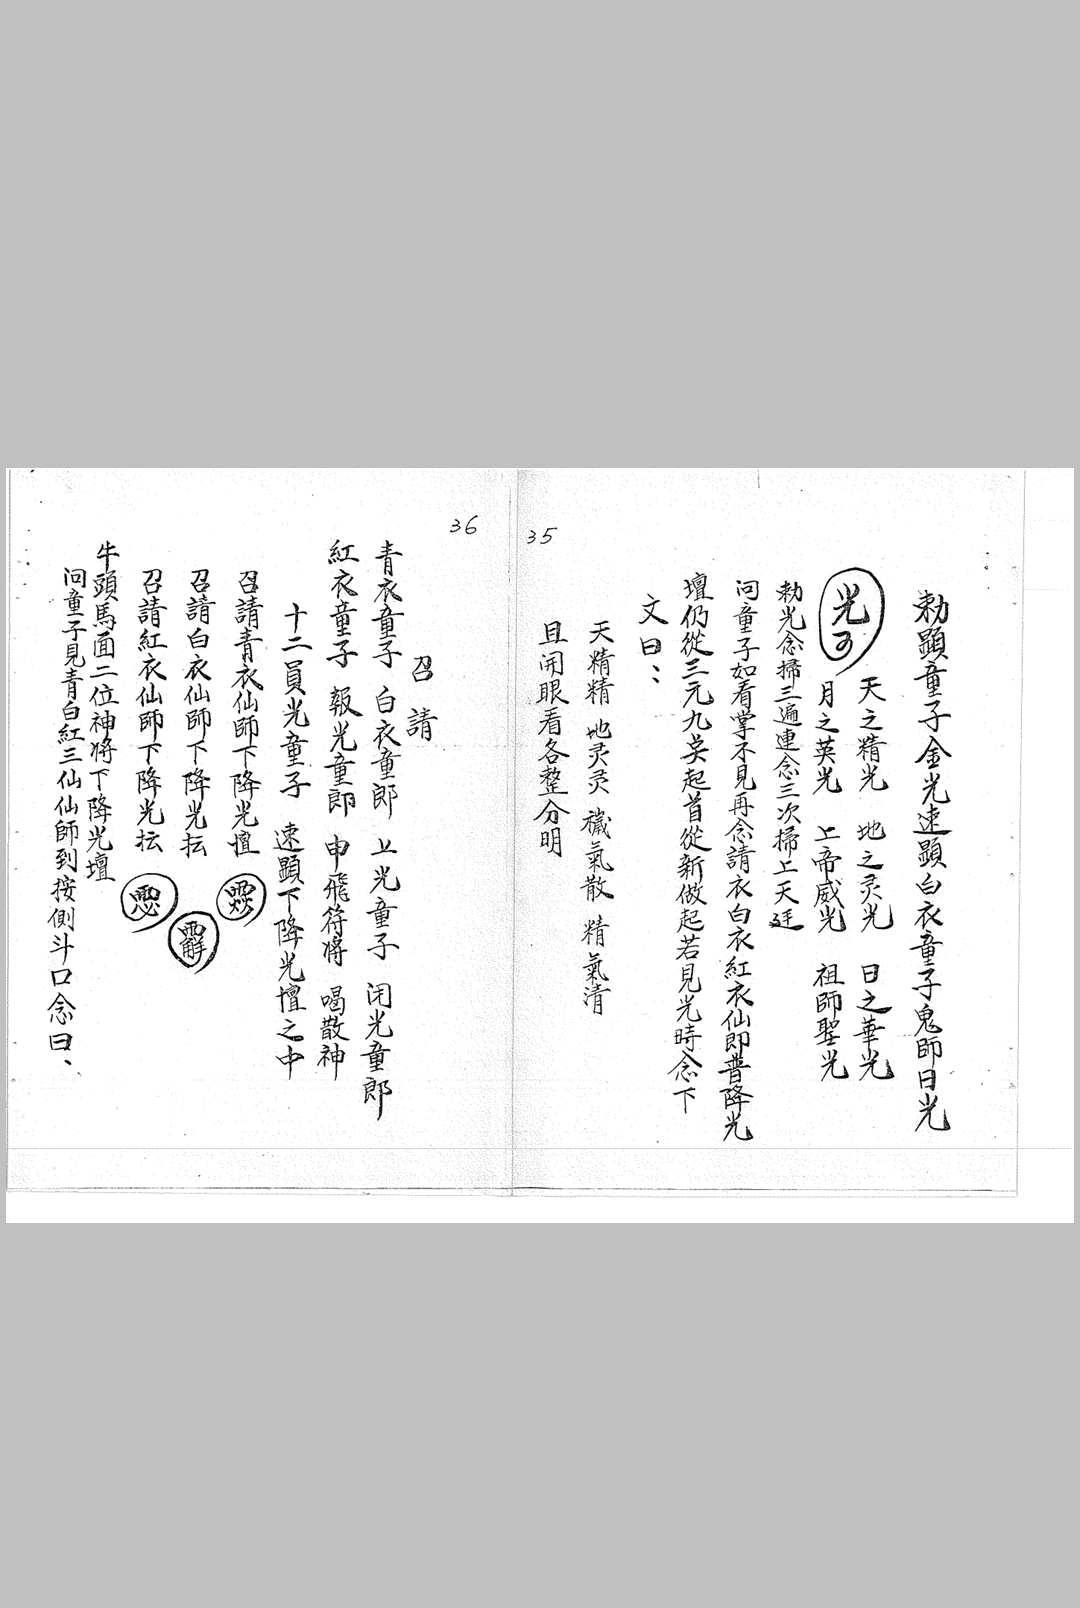 35
勅顕童子金光速顕白衣童子鬼師日光
天之精光 地之灵光 日之華光
光
月之英光 上帝威光 祖師聖光
勅光念掃三遍連念三次掃上天廷
问童子如看掌不見再念請衣白衣紅衣仙即普降光
壇仍從三元九吴起首從新做起若見光時念下
文曰:
天精精 地灵灵 穢氣散 精氣清
且開眼看各整分明
36
召請
青衣童子 白衣童郎 上光童子 闭光童郎
紅衣童子 報光童郎 申飛符將 喝散神
十二員光童子 速顕下降光壇之中
召請青衣仙師下降光壇
召請白衣仙師下降光坛
召請紅衣仙師下降光坛
牛頭馬面二位神将下降光壇
问童子見青白紅三仙仙師到按側斗口念曰、